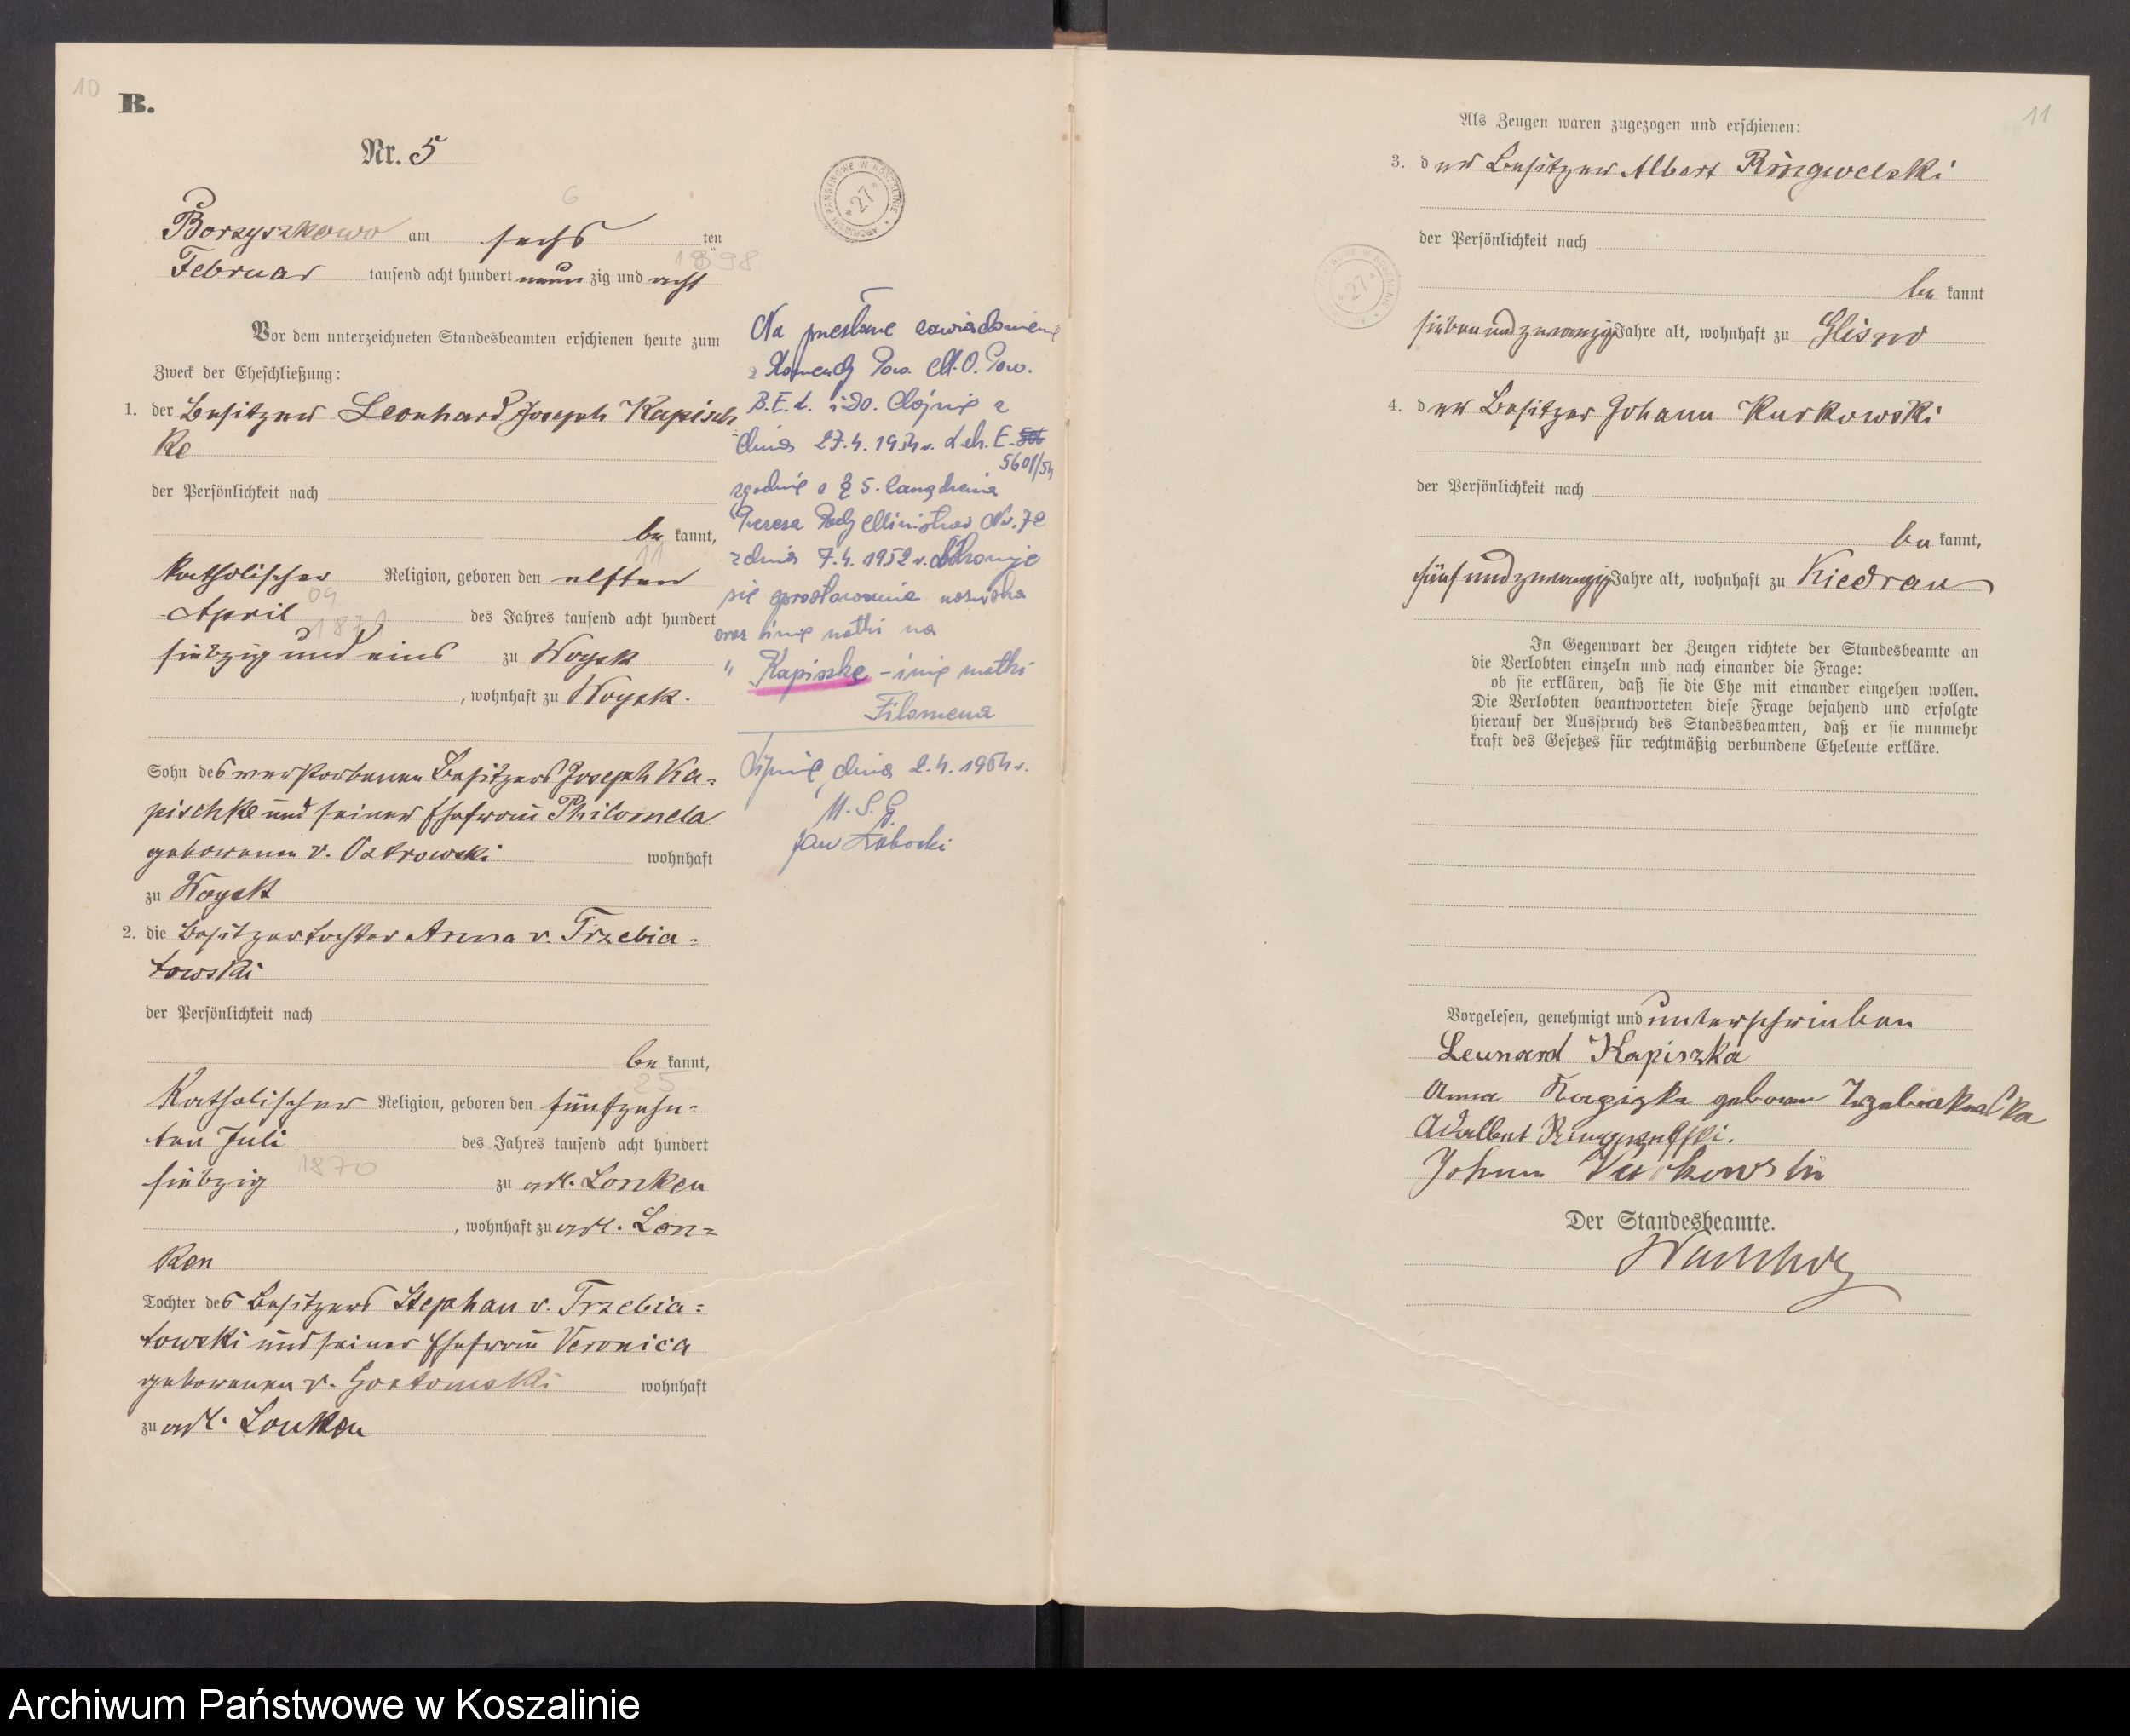 10
B.
Nr. 5
6
Borzyszkowo am sechs ten
1898
Februar tausend acht hundert neun zig und acht
Vor dem unterzeichneten Standesbeamten erschienen heute zum
Zweck der Eheschließung:
1. der Besitzer Leonhard Joseph Kapisch
ke
der Persönlichkeit nach
be kannt,
11
katholischer Religion, geboren den elften
04
April des Jahres tausend acht hundert
1871
siebzig und eins zu Woysk
, wohnhaft zu Woysk.
Sohn des verstorbenen Besitzers Joseph Ka=
pischke und seiner Ehefrau Philomela
geborenen v. Ostrowski wohnhaft
zu Woysk
2. die Besitzertochter Anna v. Trzebia=
towski
der Persönlichkeit nach
be kannt,
25
Katholischer Religion, geboren den fünfzehn=
ten Juli des Jahres tausend acht hundert
1870
siebzig zu adl. Lonken
, wohnhaft zu adl. Lon=
ken
Tochter des Besitzers Stephan v. Trzebia=
towski und seiner Ehefrau Veronica
geborenen v. Gostomski wohnhaft
zu adl. Lonken
ARCHIWUM PAŃSTWOWE W KOSZALINIE
* 27 *
Na przesłane zawiadomienie
z Komendy Pow. M.O. Pow.
B.E.L. i DO. Chojnice z
dnia 27.4.1954 r. L.ch. E.
5601/54
zgodnie z § 5.
Prezesa Rady Ministrów Nr. 72
z dnia 7.4.1952 r. dokonuje
się sprostowania nazwiska
oraz imię matki na
" Kapiszke - imię matki
Filomena
Lipnica, dnia 2.4.1954 r.
U.S.C.
Jan
11
Als Zeugen waren zugezogen und erschienen:
3. der Besitzer Albert Ringwelski
der Persönlichkeit nach
be kannt
siebenundzwanzig Jahre alt, wohnhaft zu Glisno
4. der Besitzer Johann Kurkowski
der Persönlichkeit nach
be kannt,
fünfundzwanzig Jahre alt, wohnhaft zu Kiedrau
In Gegenwart der Zeugen richtete der Standesbeamte an
die Verlobten einzeln und nach einander die Frage:
ob sie erklären, daß sie die Ehe mit einander eingehen wollen.
Die Verlobten beantworteten diese Frage bejahend und erfolgte
hierauf der Ausspruch des Standesbeamten, daß er sie nunmehr
kraft des Gesetzes für rechtmäßig verbundene Eheleute erkläre.
Vorgelesen, genehmigt und unterschrieben
Leunard Kapiszka
Anna Kapiszka geboren
Adalbert Ringwelski.
Johann Kurkowski
Der Standesbeamte.
* 27 *
Archiwum Państwowe w Koszalinie